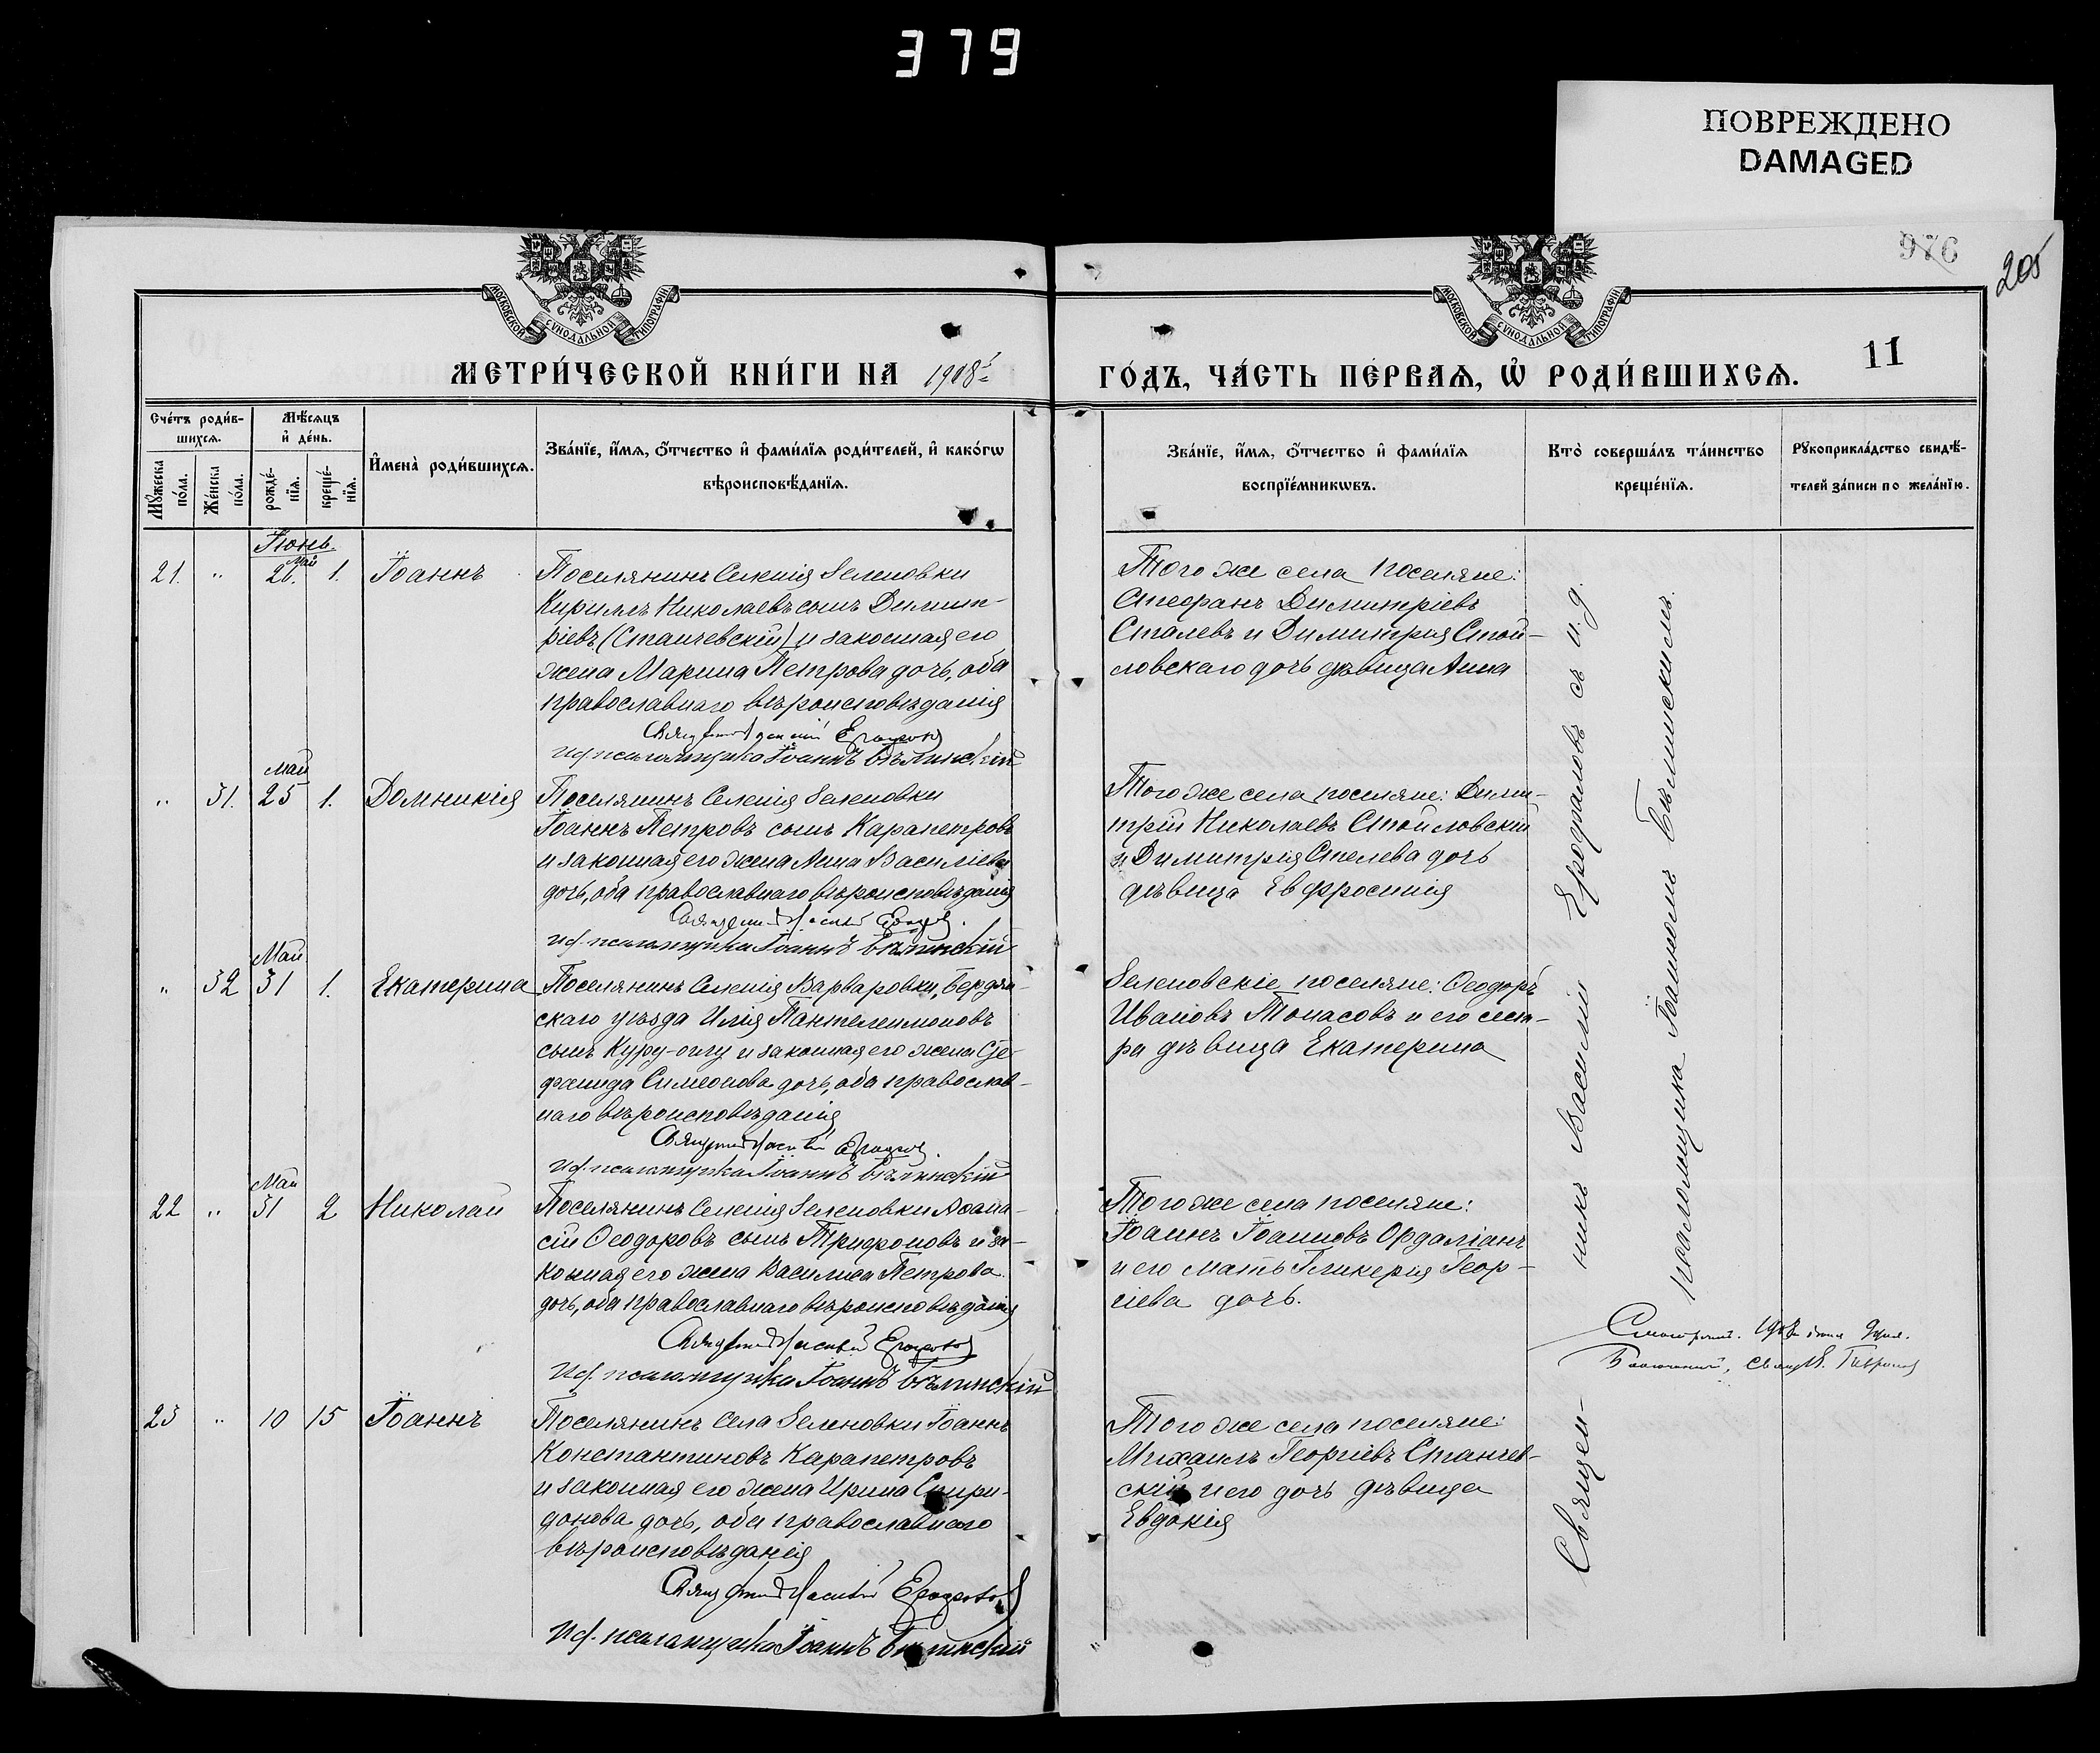 379
ПОВРЕЖДЕНО
DAMAGED
976
205
МОСКОВСКОЙ СѴНОДАЛЬНОЙ ТИПОГРАФІИ
МОСКОВСКОЙ СѴНОДАЛЬНОЙ ТИПОГРАФІИ
МЕТРИ́ЧЕСКОЙ КНИ́ГИ НА 1908
ГО́ДЪ, ЧА́СТЬ ПЕ́РВАѦ, Ѡ҆ РОДИ́ВШИХСѦ.
11
Сче́тъ роди́в-
шихсѧ.
Мѣ́сѧцъ
и҆ де́нь.
Мꙋ́жеска по́ла.
Же́нска по́ла.
рожде́-
нїѧ.
креще́-
нїѧ.
И҆мена̀ роди́вшихсѧ.
Зва́нїе, и҆́мѧ, ѻ҆́тчество и҆ фами́лїѧ роди́телей, и҆ како́гѡ
вѣроисповѣ́данїѧ.
Зва́нїе, и҆́мѧ, ѻ҆́тчество и҆ фами́лїѧ
воспрїе́мникѡвъ.
Кто̀ соверша́лъ та́инство
креще́нїѧ.
Рꙋкоприкла́дство свидѣ́-
телей за́писи по жела́нїю.
Іюнь.
Май
21. " 26. 1. Іоаннъ
Поселянинъ Селенія Зеленовки
Кириллъ Николаевъ сынъ Димит-
ріевъ (Станчевскій) и законная его
жена Марина Петрова дочь, оба
православнаго вѣроисповѣданія
Священникъ Василій Ерофаловъ
И.д. псаломщика Іоаннъ Бѣлинскій
Того же села поселяне:
Стефанъ Димитріевъ
Сталевъ и Димитрія Стой-
ловскаго дочь дѣвица Анна
Май
" 31. 25 1. Домникія
Поселянинъ Селенія Зеленовки
Іоаннъ Петровъ сынъ Карапетровъ
и законная его жена Анна Василіева
дочь, оба православнаго вѣроисповѣданія
Священникъ Василій Ерофаловъ
И.д. псаломщика Іоаннъ Бѣлинскій
Того же села поселяне: Дими-
трій Николаевъ Стойловскій
и Димитрія Стелева дочь
дѣвица Евфросинія
Май
" 32 31 1. Екатерина
Поселянинъ Селенія Варваровки, Бердян-
скаго уѣзда Илія Пантелеимоновъ
сынъ Куру-оглу и законная его жена
Симеонова дочь, оба православ-
наго вѣроисповѣданія
Священникъ Василій Ерофаловъ
И.д. псаломщика Іоаннъ Бѣлинскій
Зеленовскіе поселяне: Ѳеодоръ
Ивановъ Топасовъ и его сест-
ра дѣвица Екатерина
Май
22 " 31 2 Николай
Поселянинъ Селенія Зеленовки Аѳана-
сій Ѳеодоровъ сынъ Трифоновъ и за-
конная его жена Василиса Петрова
дочь, оба православнаго вѣроисповѣданія
Священникъ Василій Ерофаловъ
И.д. псаломщика Іоаннъ Бѣлинскій
Того же села поселяне:
Іоаннъ Іоанновъ Ордаліанъ
и его мать Гликерія Геор-
гіева дочь.
23 " 10 15 Іоаннъ
Поселянинъ Села Зеленовки Іоаннъ
Константиновъ Карапетровъ
и законная его жена Ирина Спири-
донова дочь, оба православнаго
вѣроисповѣданія
Священникъ Василій Ерофаловъ
И.д. псаломщика Іоаннъ Бѣлинскій
Того же села поселяне:
Михаилъ Георгіевъ Станчев-
скій и его дочь дѣвица
Евдокія
Священ-
никъ Василій Ерофаловъ съ и.д.
псаломщика Іоанномъ Бѣлинскимъ.